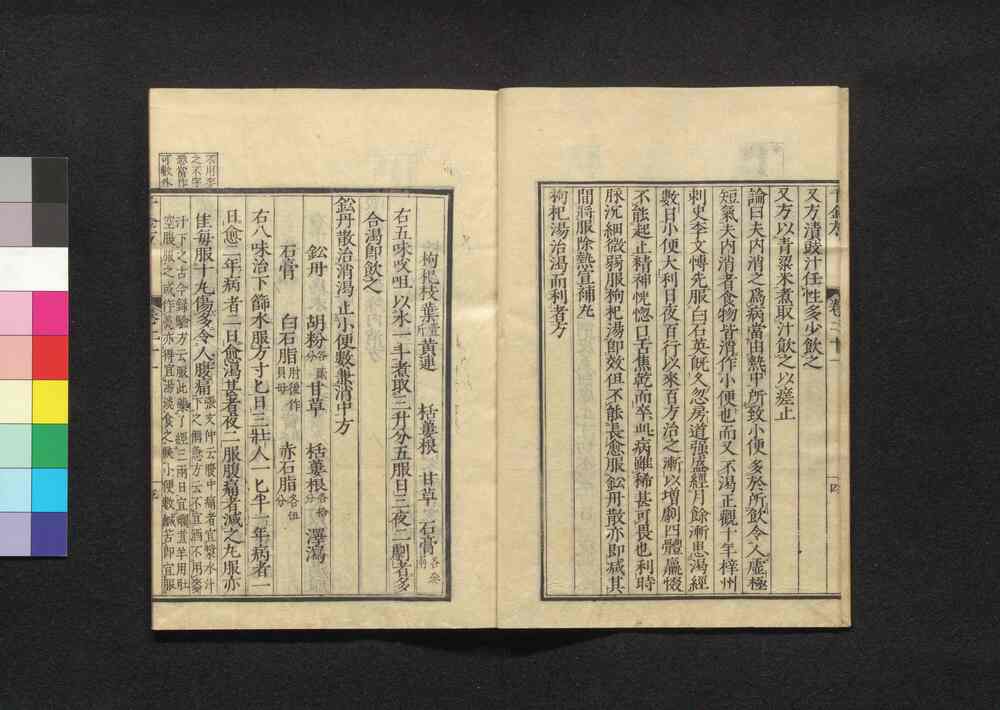 又方漬豉汁任性多少飲之
又方以青粱米煮取汁飲之以瘥止
論曰夫内消之爲病當由熱中所致小便多於所飲令人虛極
短氣夫内消者食物皆消作小便也而又不渴正觀十年梓州
刺史李文博先服白石英旣久忽房道强盛經月餘漸患渴經
數日小便大利日夜百行以來百方治之漸以增劇四體羸惙
不能起止精神恍惚口舌焦乾而卒此病雖稀甚可畏也利時
脉沉細微弱服枸杞湯即效但不能長愈服鈆丹散亦即减其
間將服除熱宣補丸
枸杞湯治渴而利者方
枸杞枝葉 黄連 栝蔞根 甘草 石膏
右五味㕮咀以水一斗煮取三升分五服日三夜二劇者多
合渴即飲之
鈆丹散治消渴止小便數兼消中方
鈆丹 胡粉 甘草 栝蔞根 澤瀉
石膏 白石脂 赤石脂
右八味治下篩水服方寸匕日三壯人一匕半一年病者一
日愈二年病者二日愈渴甚者夜二服腹痛者減之丸服亦
佳每服十丸傷多令人腹痛
張文仲云腹中痛者宜漿水汁
下之備急方云不宜酒不用麥
汁下之古今錄驗方云服此藥了經三兩日宜爛煮羊肝肚
空腹服之或作羹亦得宜湯淡食之候小便數鹹苦即宜服